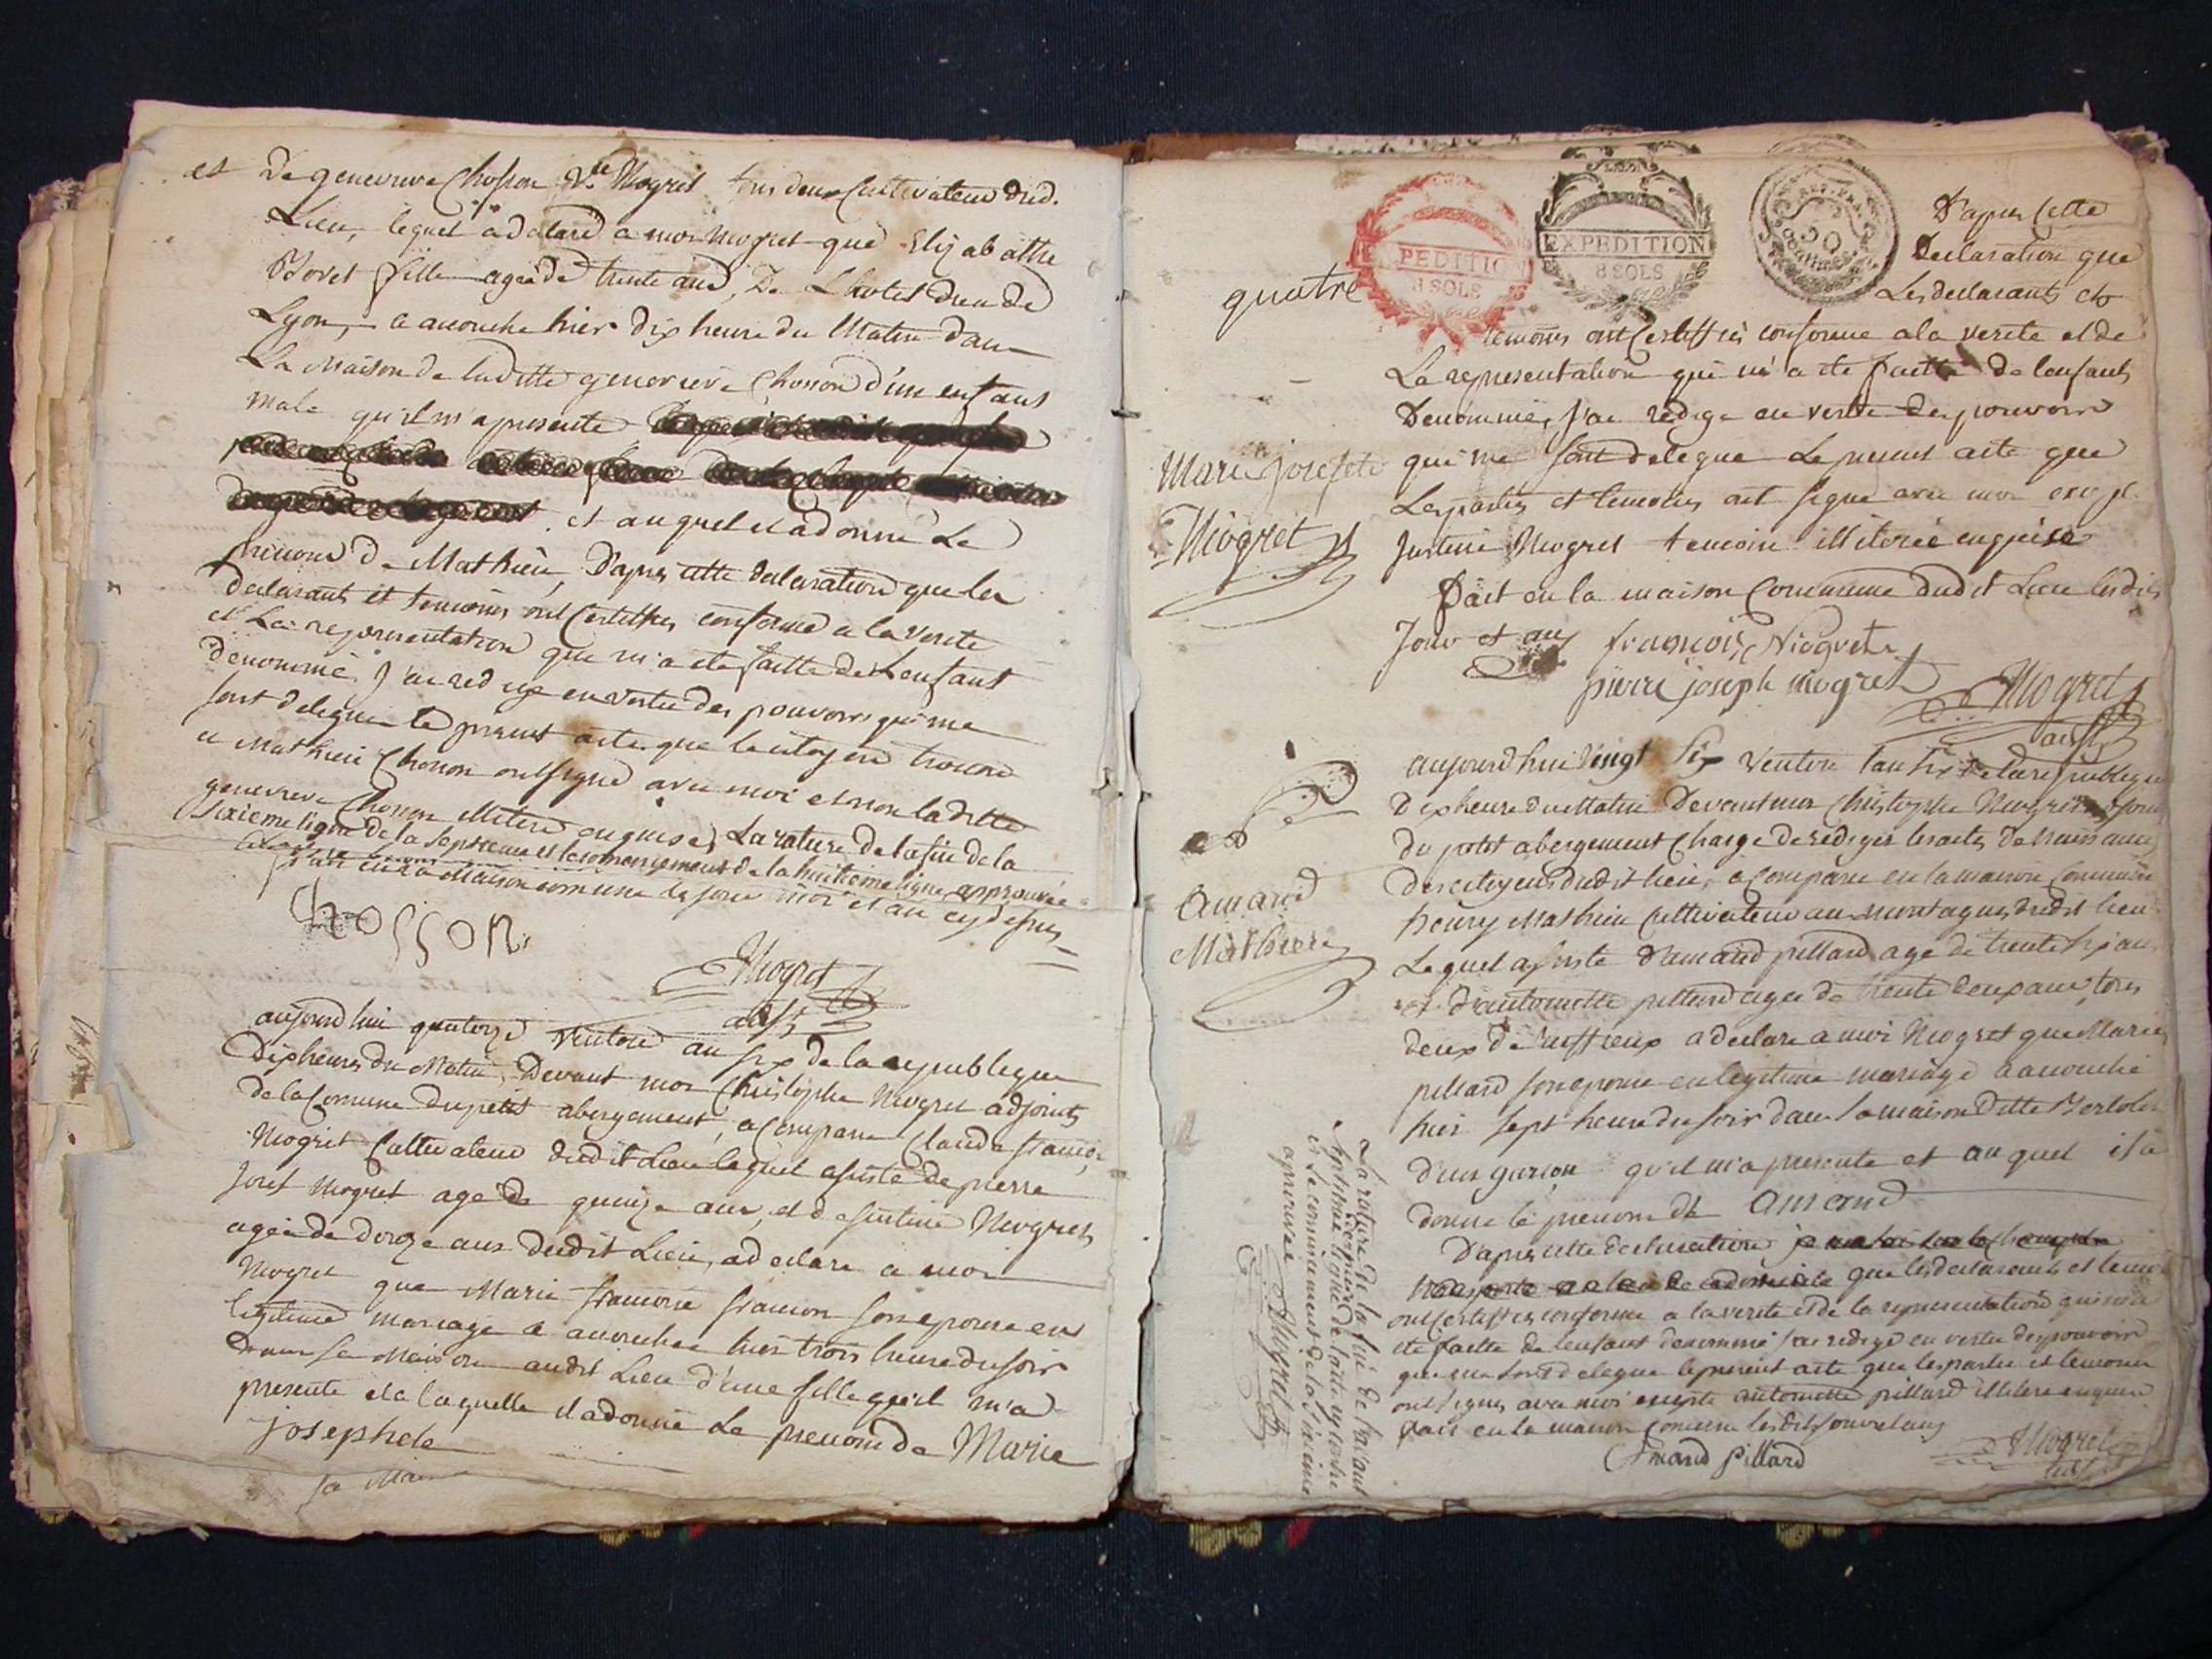 et De genevieve Chosson Ve Niogret tous deux Cultivateur dud.
Lieu, lequel a declaré a moi Niogret que Elizabatthe
Bovet fille agée de trente ans, De L'hotel dieu de
Lyon, a accouché hier dix heure du Matin dans
La Maison de laditte genevieve Chosson d'un enfant
male qu'il m'a presenté
et auquel il a donné Le
prenom de Mathieu, D'apres cette declaration que les
declarants et temoins ont Certiffiés conforme a la verité
et La representation que m'a eté faitte de L'enfant
denommé, J'ai redigé en vertu des pouvoirs qui me
sont delegués le present acte que le citoyen
et Mathieu Chosson ont signé avec moi et non laditte
genevieve Chosson illiteré enquise, La rature de la fin de la
sixieme ligne de la septieme et le commencement de la huitieme ligne approuvée
fait en la Maison commune les jour mois et an cy dessus
Chosson
Niogret
adjt
aujourd'hui quatorze Ventose an six de la republique
Dix heures du Matin, Devant moi Christophe Niogret adjoint
de la Commune du petit abergement, a Comparu Claude françois
Niogret Cultivateur dudit Lieu lequel assisté de pierre
Josef Niogret agé de quinze ans, et de Justine Niogret
agée de douze ans dudit Lieu, a declaré a moi
Niogret que Marie francoise francon son epouse en
legitime mariage a accouchée hier trois heure du soir
dans sa Maison audit Lieu d'une fille qu'il m'a
presenté et a laquelle il a donné Le prenom de Marie
josephete
quatre
EXPEDITION
8 SOLS
EXPEDITION
8 SOLS
REP. FRA.
50
D'apres Cette
Declaration que
Les declarants et
temoins ont Certiffiés conforme a la verité et de
La representation qui m'a eté faitte de l'enfant
Denommé, J'ai redigé en vertu des pouvoirs
qui me sont delegué Le present acte que
Les parties et temoins ont signé avec moi excepté
Justine Niogret temoin illiterée enquise
fait en la maison Commune dudit Lieu lesdits
Jour et an
Marie josefete
Niogret
françois Niogret
pierre joseph niogret
Niogret
adjt
amand
Mathieu
aujourd'hui Vingt Six Ventose l'an six de la republique
Dix heure du Matin Devant moi Christophe Niogret adjoint
du petit abergement Chargé de rediger les actes de naissance
des citoyens dudit lieu, a Comparu en la maison Commune
henry Mathieu Cultivateur aux montagnes dudit lieu
Lequel assisté d'amand pillard agé de trente six ans
et d'antoinette pillard agée de trente deux ans, tous
deux de a declaré a moi Niogret que Marie
pillard son epouse en legitime mariage a accouché
hier sept heure du soir dans sa maison ditte
d'un garçon qu'il m'a presenté et auquel il a
donné le prenom de amand
D'apres cette declaration
que les declarants et temoins
ont certiffiés conforme a la verité et de la representation qui m'a
eté faitte de l'enfant denommé j'ai redigé en vertu des pouvoirs
qui me sont delegué le present acte que les parties et temoins
ont signés avec moi excepté antoinette pillard illiteré enquise
fait en la maison Commune lesdits jour et an
Amand pillard
Niogret
adjt
La rature de la fin de l'avant
derniere
et le commencement de la
aprouvée
Niogret